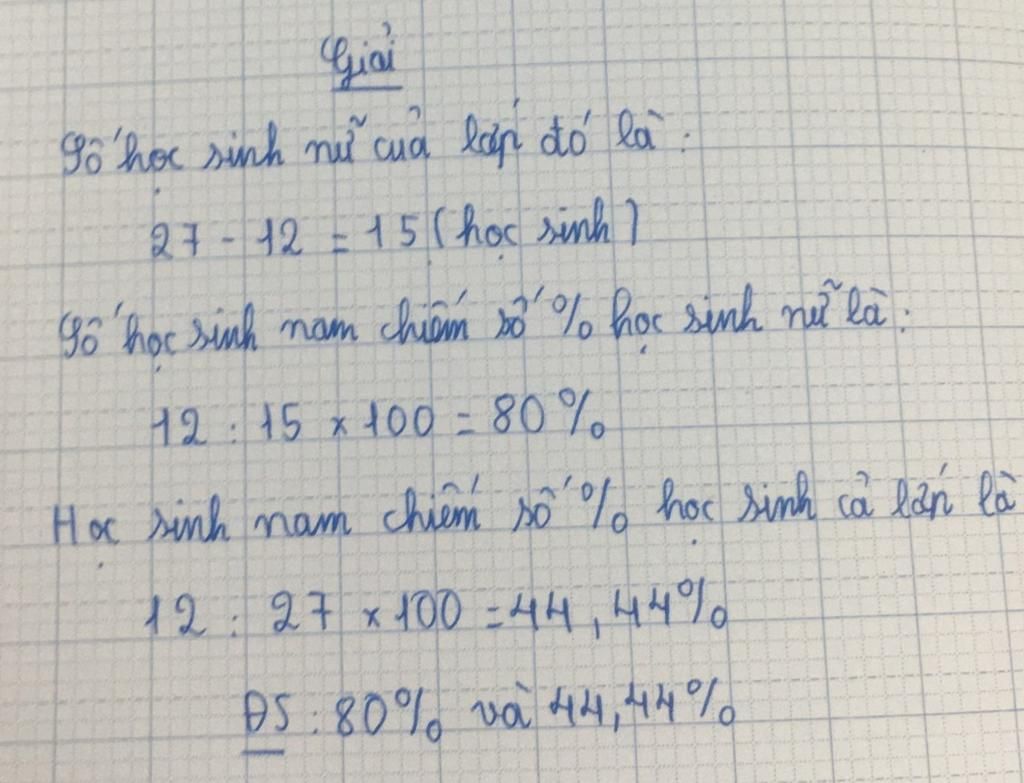 Giải
Số học sinh nữ của lớp đó là:
27 - 12 = 15 (học sinh)
Số học sinh nam chiếm số % học sinh nữ là:
12 : 15 x 100 = 80%
Học sinh nam chiếm số % học sinh cả lớp là
12 : 27 x 100 = 44,44%
ĐS : 80% và 44,44%